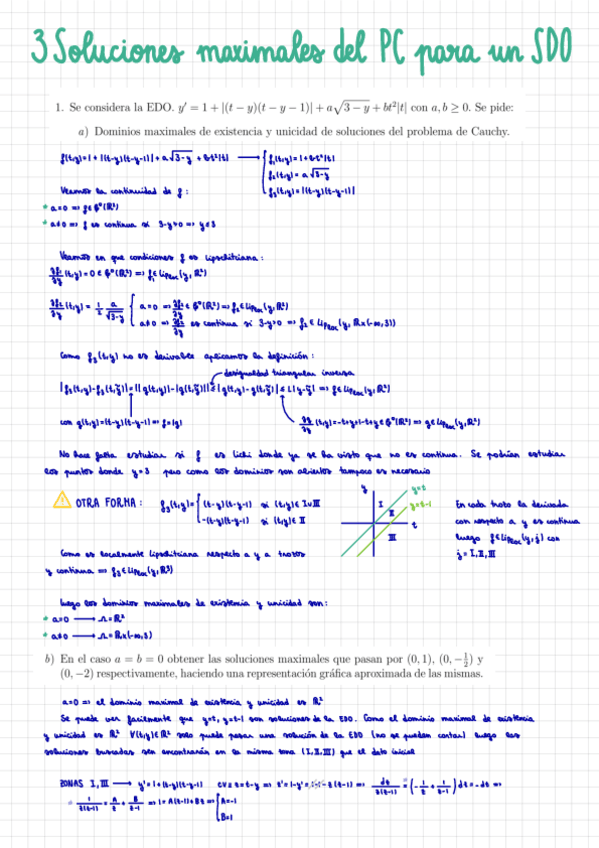 3 Soluciones maximales del PC para un SDO
1. Se considera la EDO. y′ = 1 + |(t − y)(t − y − 1)| + a√(3 − y) + bt²|t| con a, b ≥ 0. Se pide:
a) Dominios maximales de existencia y unicidad de soluciones del problema de Cauchy.
f(t,y)=1+|(t-y)(t-y-1)|+a√(3-y)+bt²|t| → f₁(t,y)=1+bt²|t|
f₂(t,y)=a√(3-y)
f₃(t,y)=|(t-y)(t-y-1)|
Veamos la continuidad de f:
* a=0 => f∈C⁰(R²)
* a≠0 => f es continua si 3-y≥0 => y≤3
Veamos en que condiciones f es lipschitziana:
∂f₁/∂y (t,y)=0∈C⁰(R²) => f₁∈Liploc(y,R²)
a=0 => ∂f₂/∂y ∈C⁰(R²) => f₂∈Liploc(y,R²)
a≠0 => ∂f₂/∂y es continua si 3-y>0 => f₂∈Liploc(y,Rx(-∞,3))
Como f₃(t,y) no es derivable aplicamos la definición:
desigualdad triangular inversa
con g(t,y)=(t-y)(t-y-1) => f₃=|g|
No hace falta estudiar si f es lichi donde ya se ha visto que no es continua. Se podrían estudiar
los puntos donde y=3 pero como los dominios son abiertos tampoco es necesario
OTRA FORMA: f₃(t,y)= (t-y)(t-y-1) si (t,y)∈ I∪III
-(t-y)(t-y-1) si (t,y)∈ II
y
y=t
y=t-1
t
I
II
III
En cada trozo la derivada
con respecto a y es continua
luego f∈Liploc(y,j) con
j=I,II,III
Como es localmente lipschitziana respecto a y a trozos
y continua => f₃∈Liploc(y,R²)
luego los dominios maximales de existencia y unicidad son:
* a=0 → Ω=R²
* a≠0 → Ω=Rx(-∞,3)
b) En el caso a = b = 0 obtener las soluciones maximales que pasan por (0, 1), (0, −1/2) y
(0, −2) respectivamente, haciendo una representación gráfica aproximada de las mismas.
a=0 => el dominio maximal de existencia y unicidad es R²
Se puede ver facilmente que y=t, y=t-1 son soluciones de la EDO. Como el dominio maximal de existencia
y unicidad es R² ∀(t,y)∈R² solo puede pasar una solución de la EDO (no se pueden cortar) luego las
soluciones buscadas se encontrarán en la misma zona (I,II,III) que el dato inicial
ZONAS I,III → y'=1+(t-y)(t-y-1) CV: z=t-y => z'=1-y'= -z(z-1) => dz/z(z-1) = (-1/z + 1/(z-1)) dz = -dt =>
* 1/z(z-1) = A/z + B/(z-1) => 1=A(z-1)+Bz => A=-1
B=1